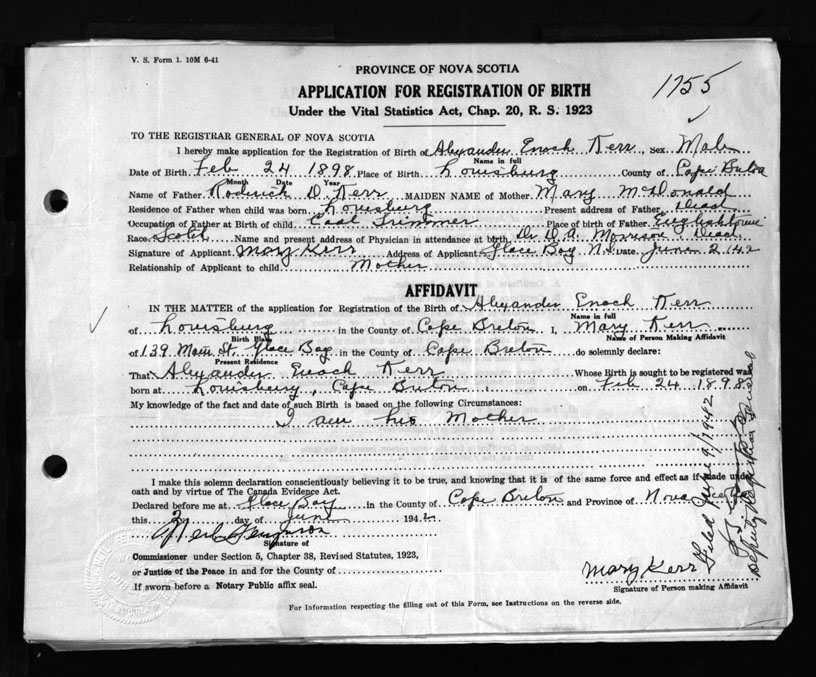 V. S. Form 1. 10M 6-41
1755
PROVINCE OF NOVA SCOTIA
APPLICATION FOR REGISTRATION OF BIRTH
Under the Vital Statistics Act, Chap. 20, R. S. 1923
TO THE REGISTRAR GENERAL OF NOVA SCOTIA
I hereby make application for the Registration of Birth of Alexander Enoch Kerr, Sex Male
Name in full
Date of Birth Feb 24 1898 Place of Birth Louisburg County of Cape Breton
Month Date Year
Name of Father Roderick D. Kerr MAIDEN NAME of Mother Mary McDonald
Residence of Father when child was born Louisburg Present address of Father Dead
Occupation of Father at Birth of child Coal Trimmer Place of birth of Father Englishtown
Race Scotch Name and present address of Physician in attendance at birth Dr D.A. Morrison Dead
Signature of Applicant Mary Kerr Address of Applicant Glace Bay N.S. Date June 2 '42
Relationship of Applicant to child Mother
AFFIDAVIT
IN THE MATTER of the application for Registration of the Birth of Alexander Enoch Kerr
Name in full
of Louisburg in the County of Cape Breton I, Mary Kerr
Birth Place Name of Person Making Affidavit
of 139 Main St. Glace Bay in the County of Cape Breton do solemnly declare:
Present Residence
That Alexander Enoch Kerr Whose Birth is sought to be registered was
born at Louisburg, Cape Breton, on Feb 24 1898
My knowledge of the fact and date of such Birth is based on the following Circumstances:
I am his Mother
I make this solemn declaration conscientiously believing it to be true, and knowing that it is of the same force and effect as if made under
oath and by virtue of The Canada Evidence Act.
Declared before me at Glace Bay in the County of Cape Breton and Province of Nova Scotia
this 2 day of June 1942
Neil Ferguson
Signature of
Commissioner under Section 5, Chapter 38, Revised Statutes, 1923,
or Justice of the Peace in and for the County of
If sworn before a Notary Public affix seal.
Mary Kerr
Signature of Person making Affidavit
For Information respecting the filling out of this Form, see Instructions on the reverse side.
Filed June 9/1942
Deputy Registrar General